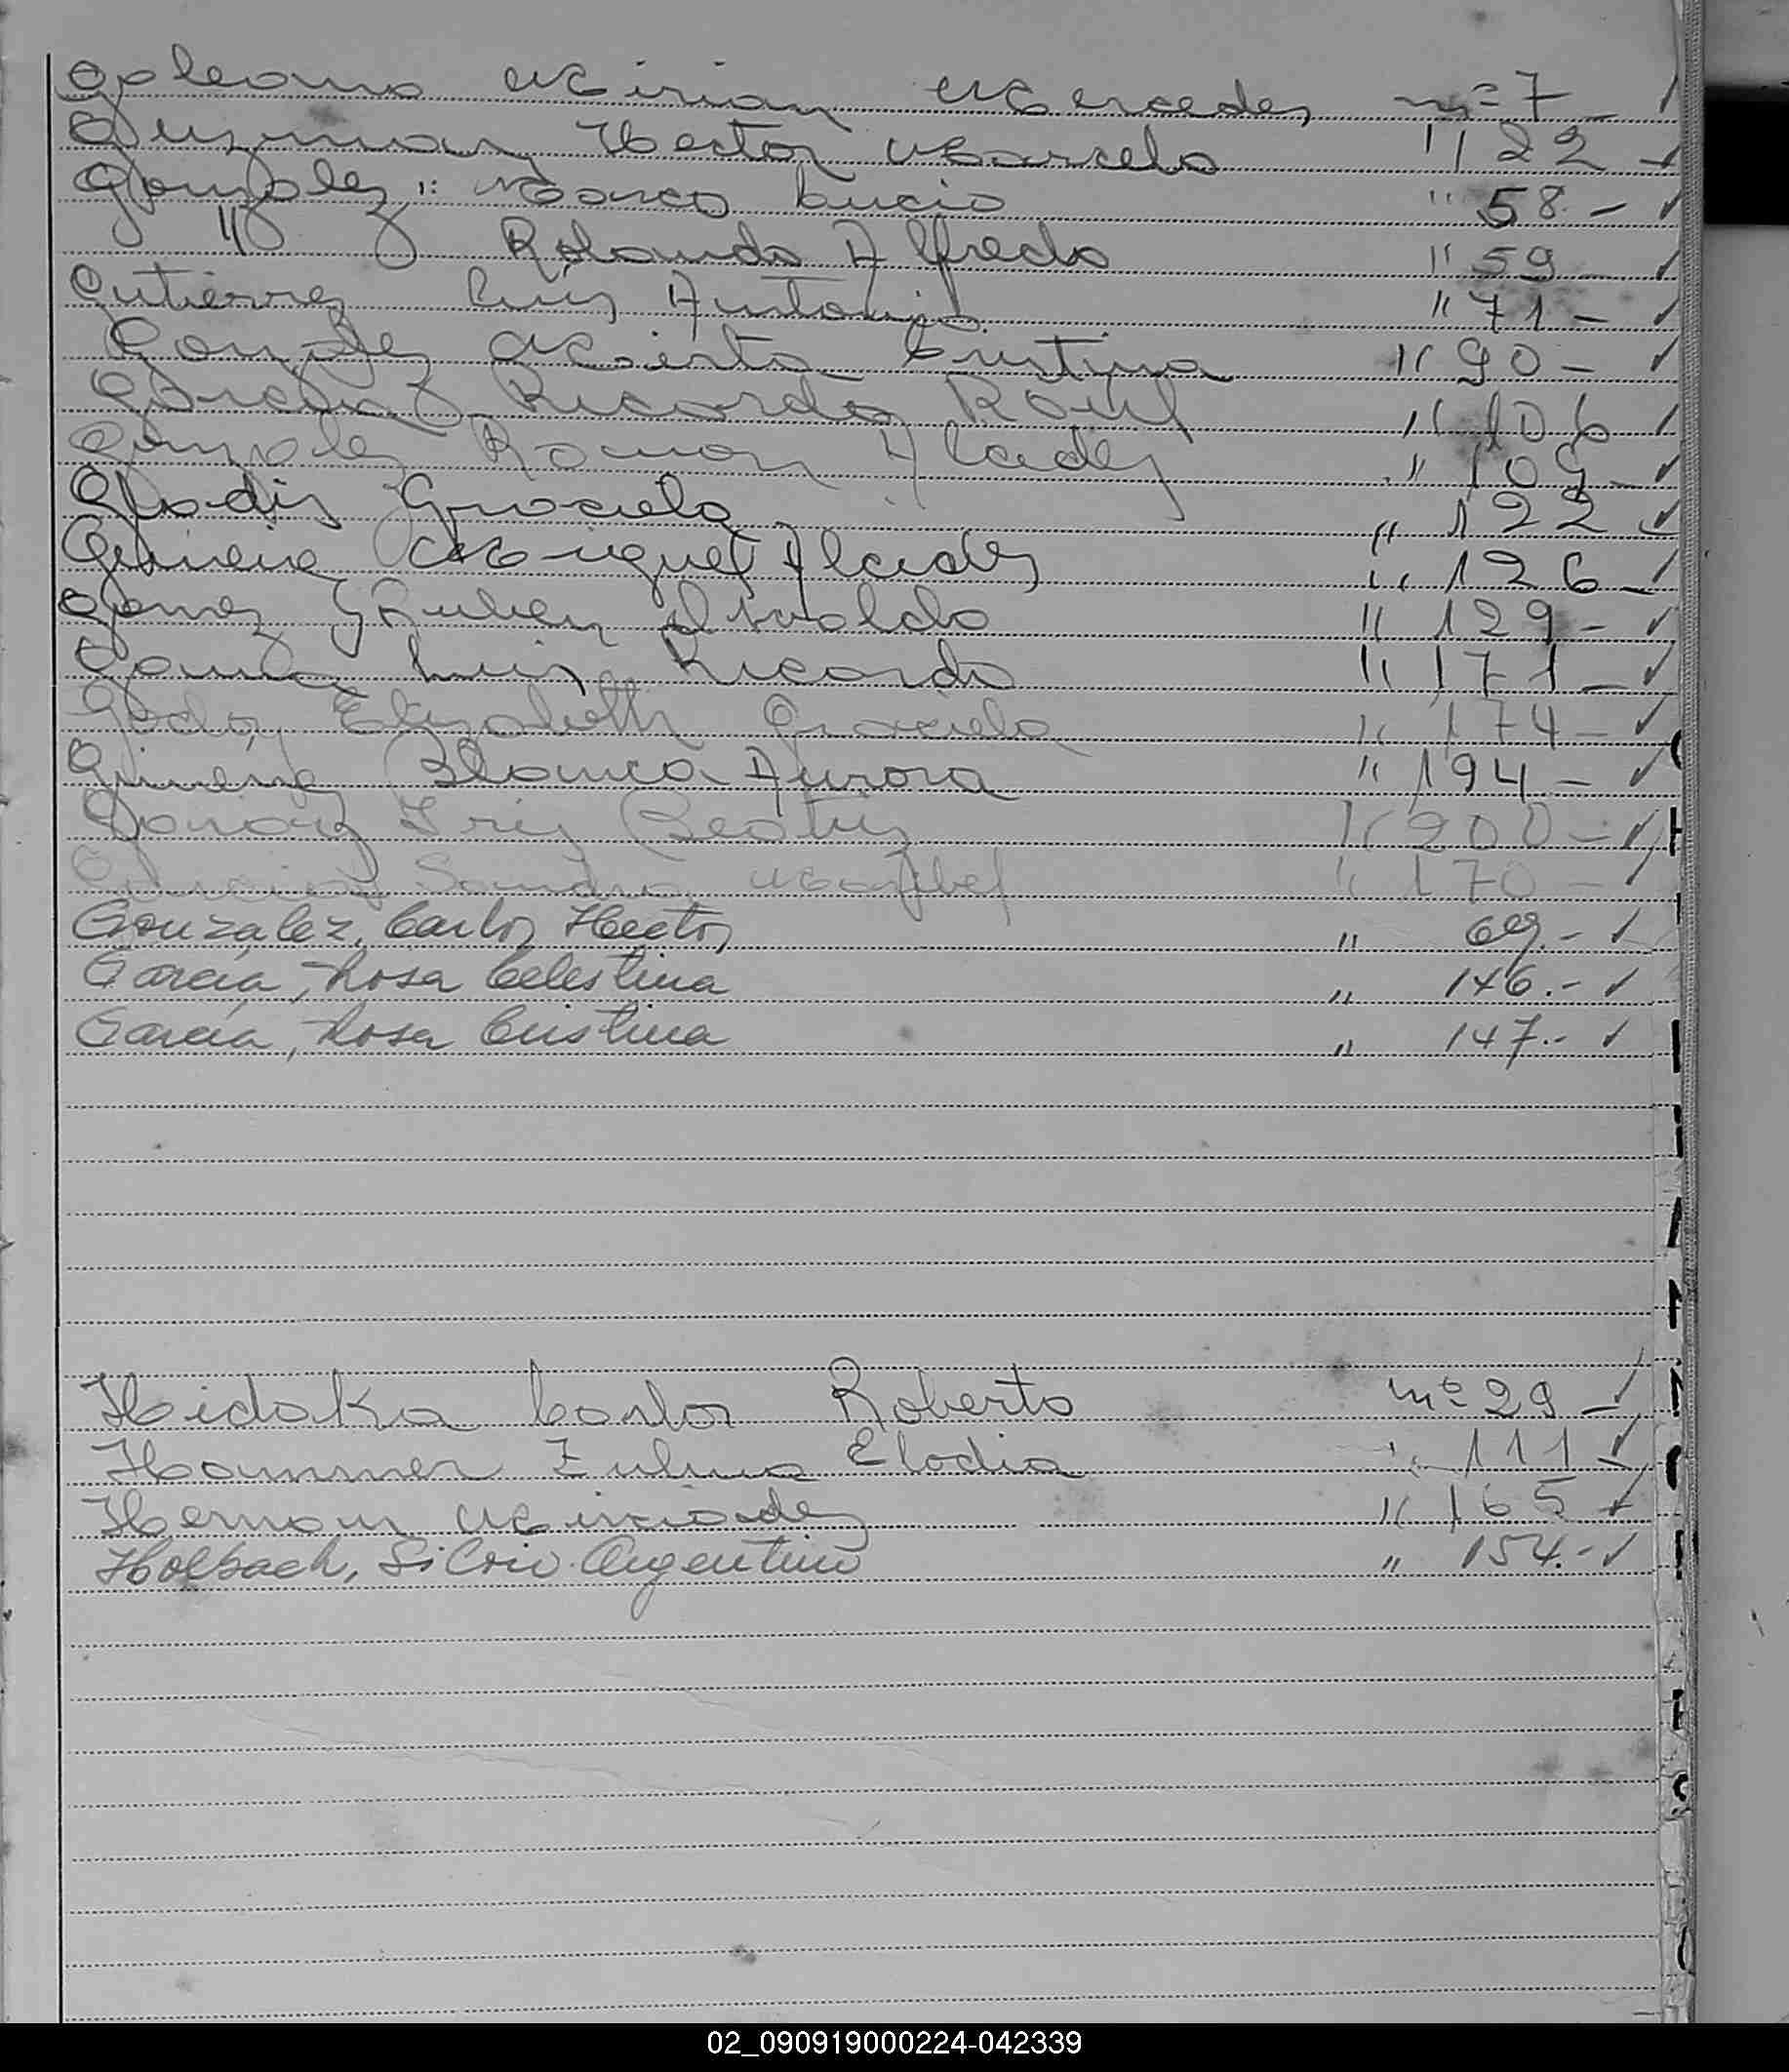 Galeano Mirian Mercedes nº 7 -
Guzman Hector Marcelo " 22 -
Gonzalez " Marco Lucio " 58 -
" Rolando Alfredo " 59 -
Gutierrez Luis Antonio " 71 -
Gonzalez Maria Cristina " 90 -
Garcia Ricardo Raul " 106
Gonzalez Ramon Alcides " 109 -
Gladis Graciela " 122
Gimenez Miguel Alcides " 126 -
Gomez Ruben Osvaldo " 129 -
Gomez Luis Ricardo " 171 -
Godoy Elizabeth Graciela " 174 -
Gimenez Blanca Aurora " 194 -
Iris Beatriz " 200 -
Sandra Maribel " 170 -
Gonzalez, Carlos Hector " 69.-
García, Rosa Celestina " 146.-
García, Rosa Cristina " 147.-
Hidaka Carlos Roberto nº 29 -
Hammer Zulma Elodia " 111 -
Herman " 165
Holbach, Silvio Argentino " 154.-
02_090919000224-042339